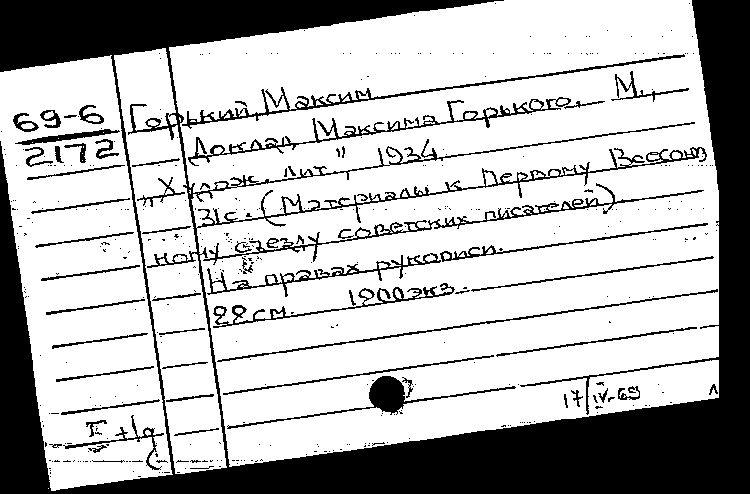 69-6
2172
Горький, Максим
Доклад Максима Горького. М.,
„Худож. лит.", 1934.
31с. (Материалы к Первому Всесоюз
ному съезду советских писателей).
На правах рукописи.
22см. 1800экз.
17/IV-69